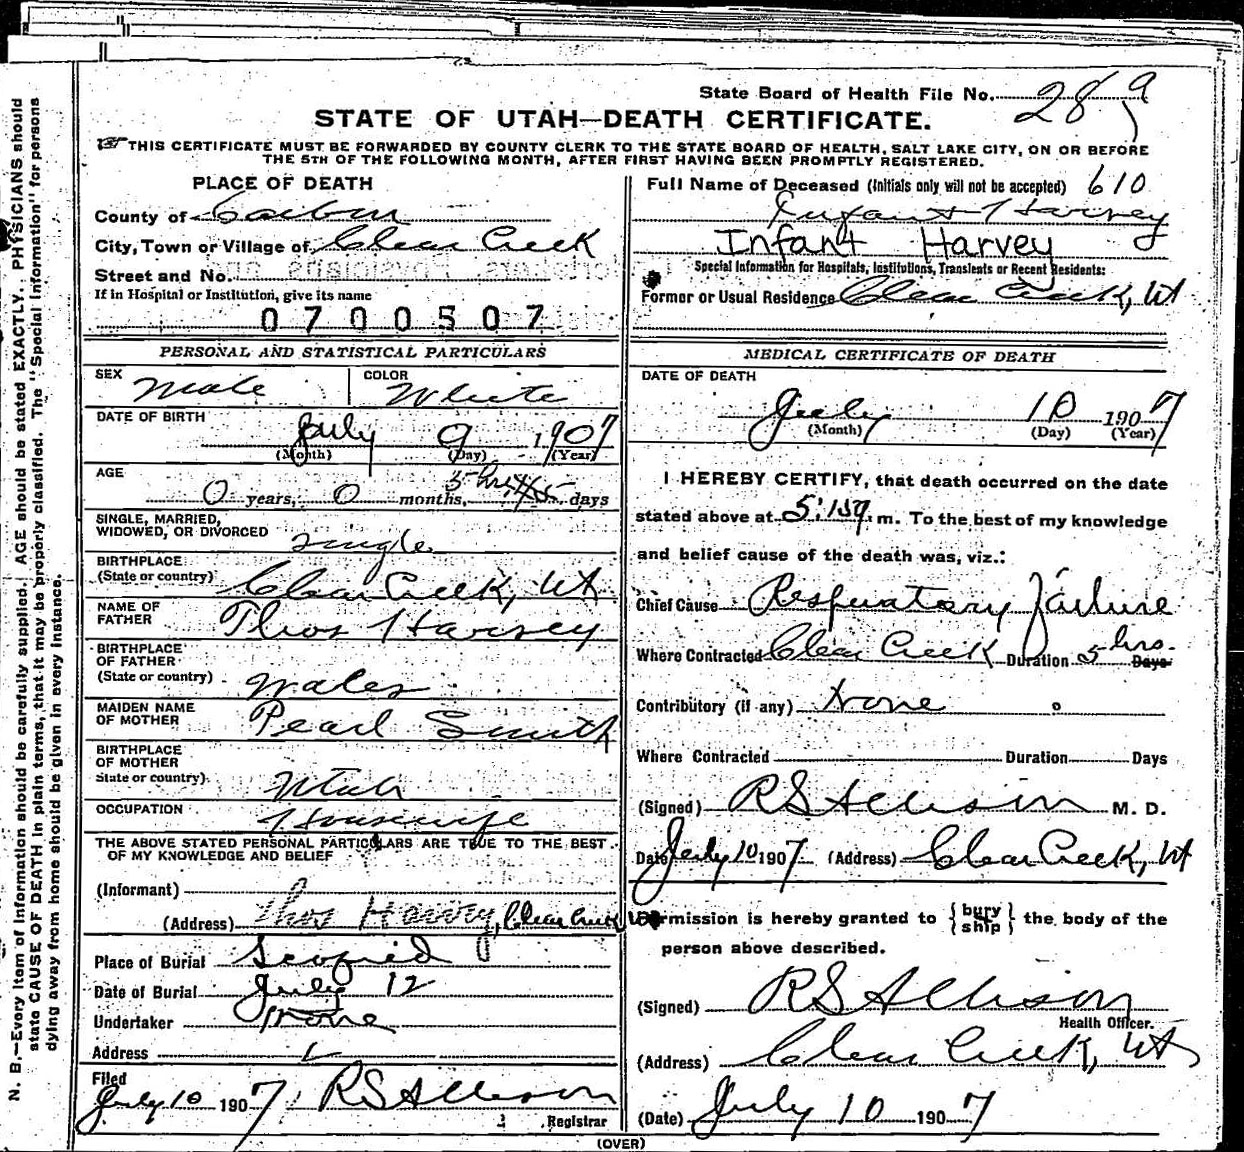 State Board of Health File No. 289
STATE OF UTAH—DEATH CERTIFICATE.
THIS CERTIFICATE MUST BE FORWARDED BY COUNTY CLERK TO THE STATE BOARD OF HEALTH, SALT LAKE CITY, ON OR BEFORE
THE 5TH OF THE FOLLOWING MONTH, AFTER FIRST HAVING BEEN PROMPTLY REGISTERED.
PLACE OF DEATH
County of Carbon
City, Town or Village of Clear Creek
Street and No.
If in Hospital or Institution, give its name
0700507
Full Name of Deceased (Initials only will not be accepted) 610
Infant Harvey
Infant Harvey
Special Information for Hospitals, Institutions, Transients or Recent Residents:
Former or Usual Residence Clear Creek, Ut
PERSONAL AND STATISTICAL PARTICULARS
SEX Male
COLOR White
DATE OF BIRTH
July 9, 1907
(Month) (Day) (Year)
AGE
0 years, 0 months, 5 hrs, days
SINGLE, MARRIED,
WIDOWED, OR DIVORCED Single
BIRTHPLACE
(State or country) Clear Creek, Ut
NAME OF
FATHER Thos Harvey
BIRTHPLACE
OF FATHER
(State or country) Wales
MAIDEN NAME
OF MOTHER Pearl Smith
BIRTHPLACE
OF MOTHER
State or country) Utah
OCCUPATION Housewife
THE ABOVE STATED PERSONAL PARTICULARS ARE TRUE TO THE BEST
OF MY KNOWLEDGE AND BELIEF
(Informant)
(Address) Thos Harvey, Clear Creek
Place of Burial Scofield
Date of Burial July 12
Undertaker None
Address
Filed
July 10 1907 RS Allison
Registrar
MEDICAL CERTIFICATE OF DEATH
DATE OF DEATH
July 10 1907
(Month) (Day) (Year)
I HEREBY CERTIFY, that death occurred on the date
stated above at m. To the best of my knowledge
and belief cause of the death was, viz.:
Chief Cause Respiratory Failure
Where Contracted Clear Creek Duration 5 hrs. Days
Contributory (if any) None
Where Contracted Duration Days
(Signed) RS Allison M. D.
Date July 10 1907 (Address) Clear Creek, Ut
Permission is hereby granted to { bury ship } the body of the
person above described.
(Signed) RS Allison
Health Officer.
(Address) Clear Creek, Ut
(Date) July 10 1907
(OVER)
N. B.—Every item of information should be carefully supplied. AGE should be stated EXACTLY. PHYSICIANS should
state CAUSE OF DEATH in plain terms, that it may be properly classified. The "Special Information" for persons
dying away from home should be given in every instance.